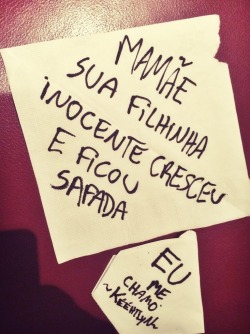 MAMÃE
SUA FILHINHA
INOCENTE CRESCEU
E FICOU
SAFADA
EU
ME
CHAMO: